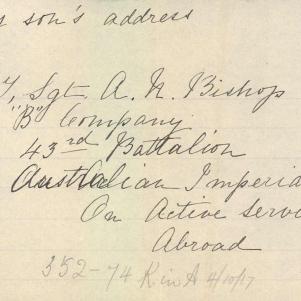 son's address
Sgt A. N. Bishop
"B" Company
43rd Battalion
Australian Imperia
On Active Servi
Abroad
352-74 K in A 4/10/17